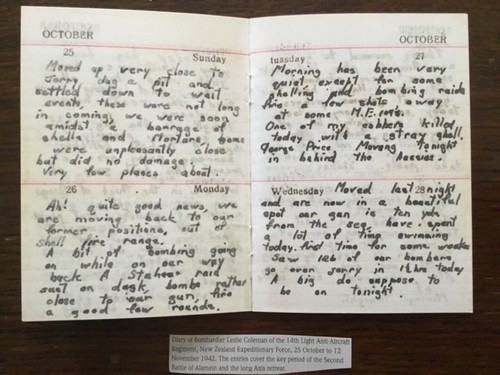 OCTOBER
25 Sunday
Moved up very close to
Jerry dug a pit and
settled down to wait
events, these ware not long
in coming, we were soon
amidst a barrage of
shells and mortars some
were unpleasantly close
but did no damage.
Very few planes about.
26 Monday
Ah! quite good news, we
are moving back to our
former positions, out of
shell fire range.
A bit of bombing going
on while on our way
back. A Stuka raid
just on dusk, bombs rather
close to our gun, fire
a good few rounds.
OCTOBER
tuesday 27
Morning has been very
quiet except for some
shelling and bombing raids
fire a few shots away
at some M.E. 109's.
One of my cobbers killed
today with a stray shell.
George Price. Moving tonight
in behind the Aussies.
Wednesday 28
Moved last night
and are now in a beautiful
spot our gun is ten yds
from the sea, have spent
a lot of time swimming
today. first time for some weeks
Saw 126 of our bombers
go over Jerry in 1½ hrs today
A big do suppose to
be on tonight.
Diary of Bombardier Leslie Coleman of the 14th Light Anti-Aircraft
Regiment, New Zealand Expeditionary Force, 25 October to 12
November 1942. The entries cover the key period of the Second
Battle of Alamein and the long Axis retreat.